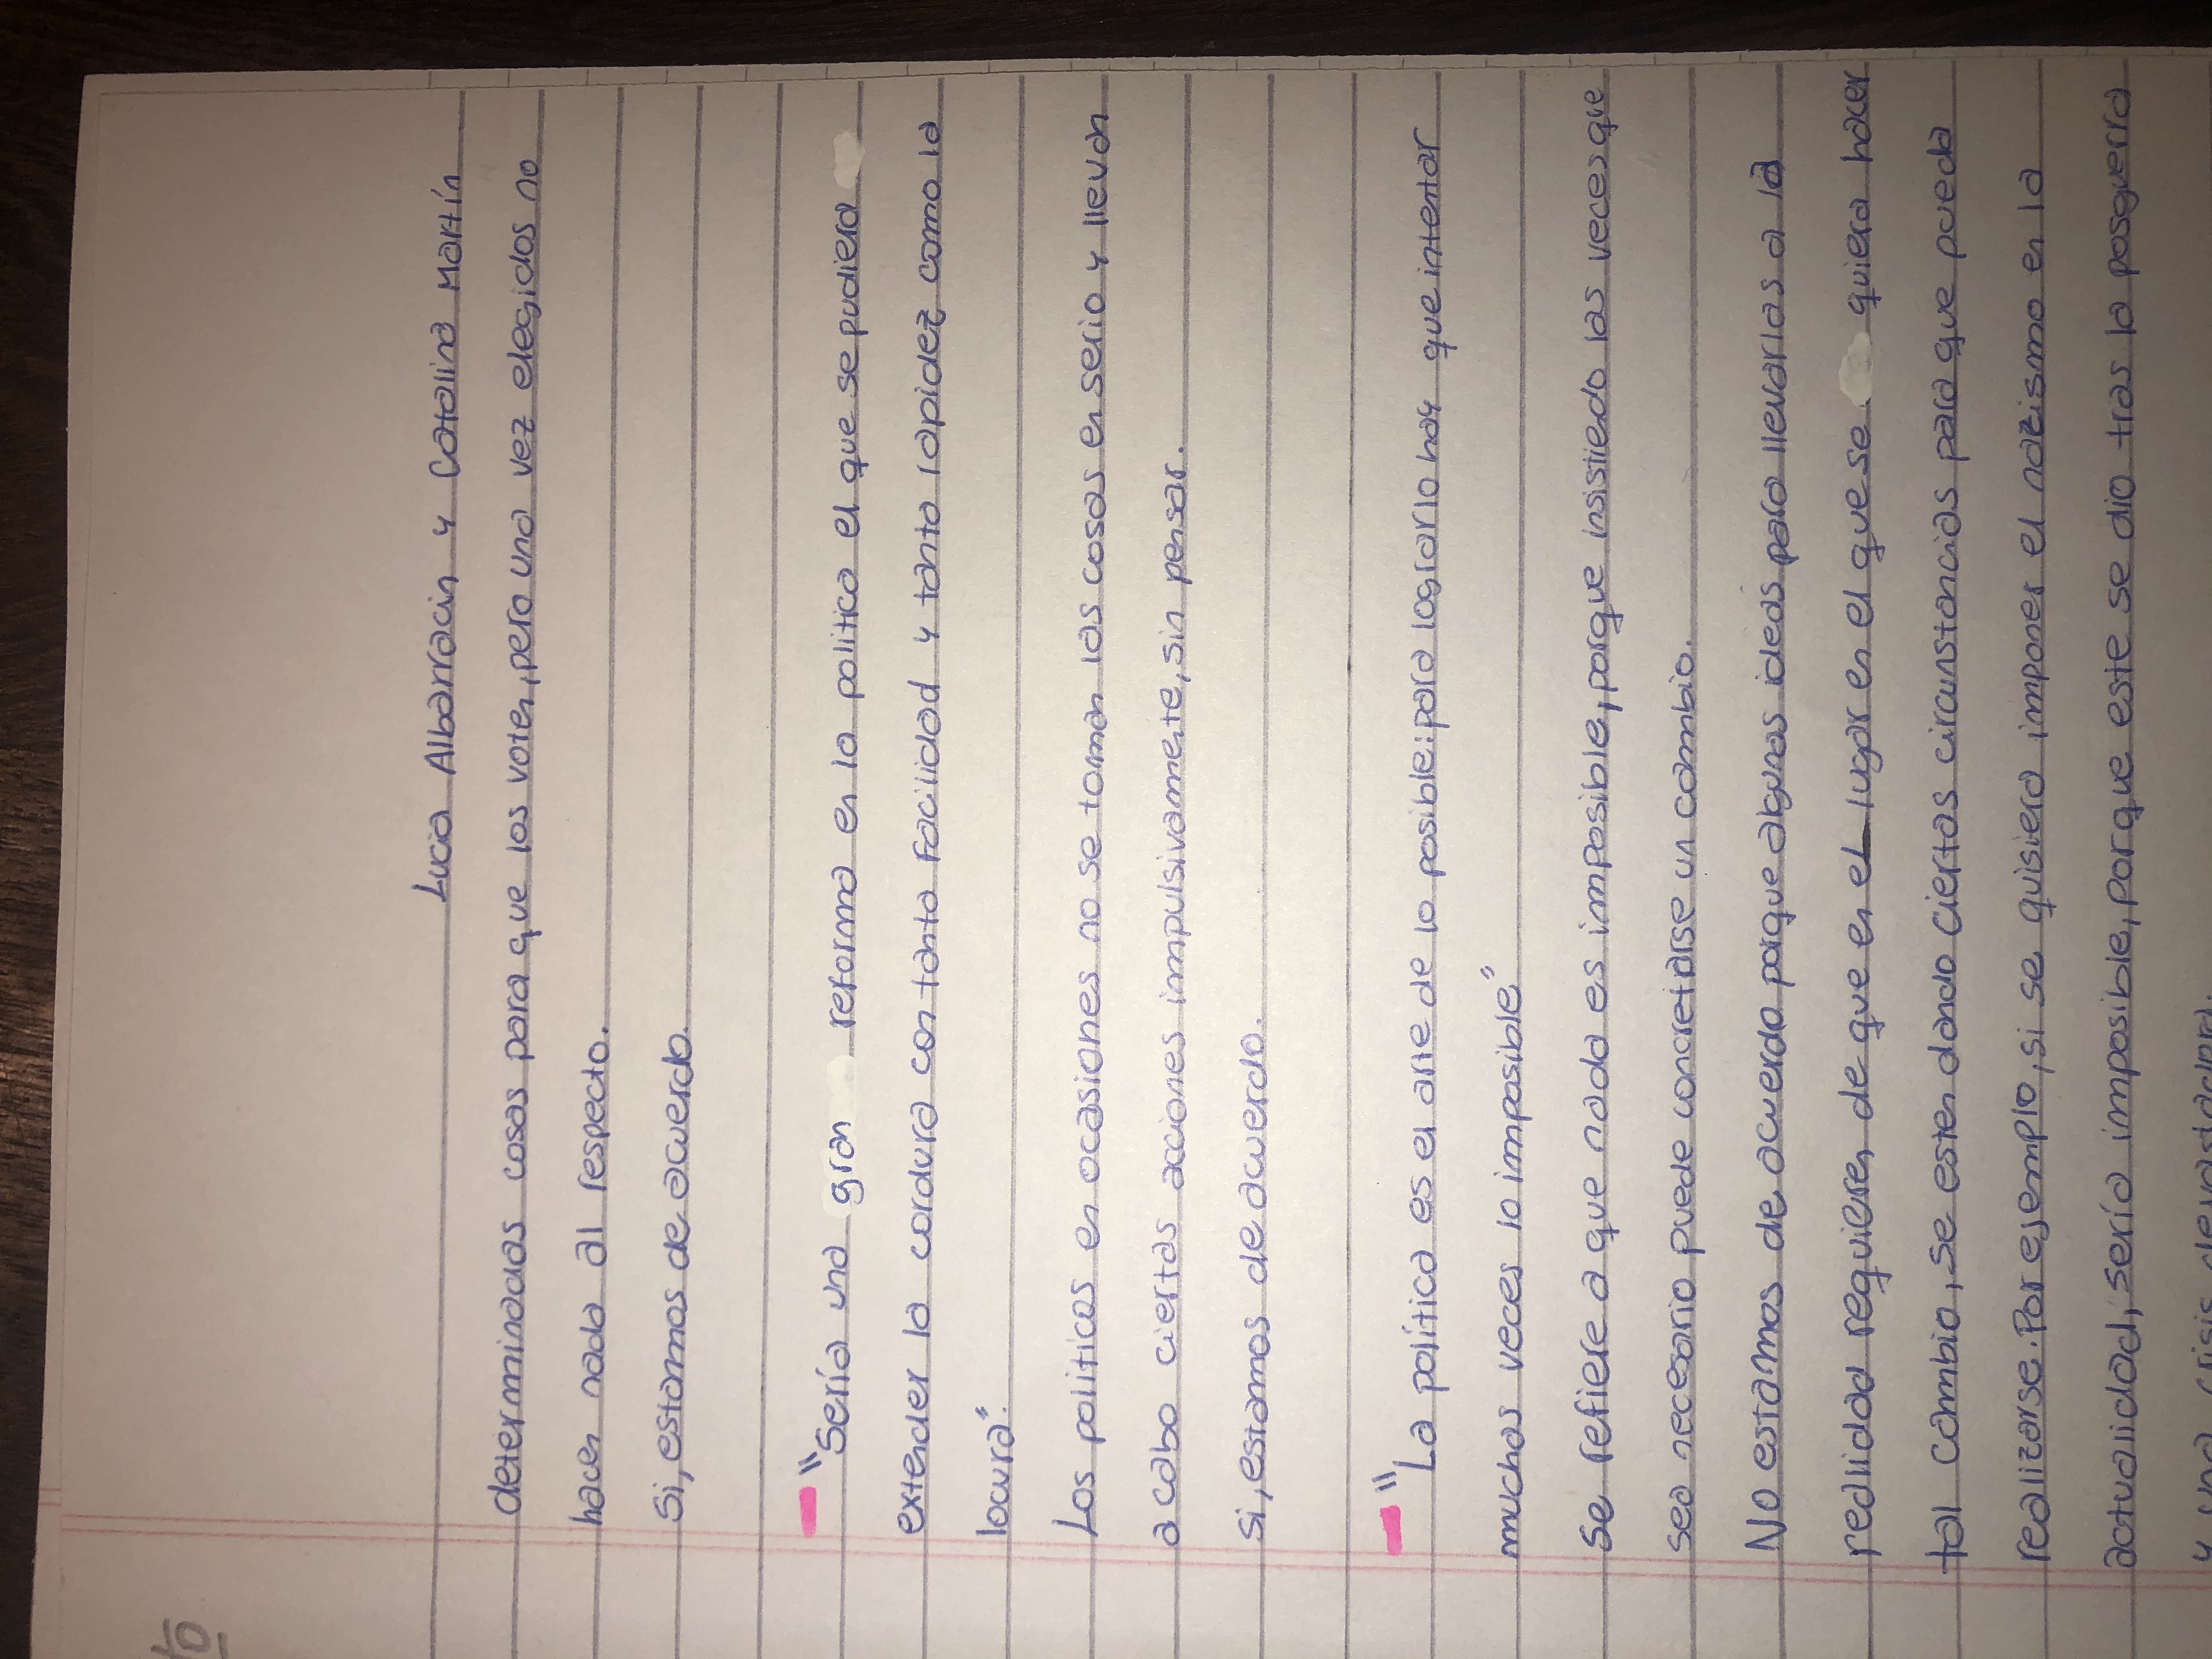 to
Lucia Albarracin y Catalina Martín
determinadas cosas para que los voten, pero una vez elegidos no
hacen nada al respecto.
Si, estamos de acuerdo.
"Sería una gran reforma en la politica el que se pudiera
extender la cordura con tanta facilidad y tanta rapidez como la
locura".
Los politicos en ocasiones no se toman las cosas en serio y llevan
a cabo ciertas acciones impulsivamente, sin pensar.
Si, estamos de acuerdo.
"La política es el arte de lo posible: para lograrlo hay que intentar
muchas veces lo imposible"
Se refiere a que nada es imposible, porque insistiendo las veces que
sea necesario puede concretarse un cambio.
No estamos de acuerdo porque algunas ideas para llevarlas a la
realidad requieren de que en el lugar en el que se quiera hacer
tal cambio, se esten dando ciertas circunstancias para que pueda
realizarse. Por ejemplo, si se quisiera imponer el nazismo en la
actualidad, sería imposible, porque este se dio tras la posguerra
y una crisis devastadora.